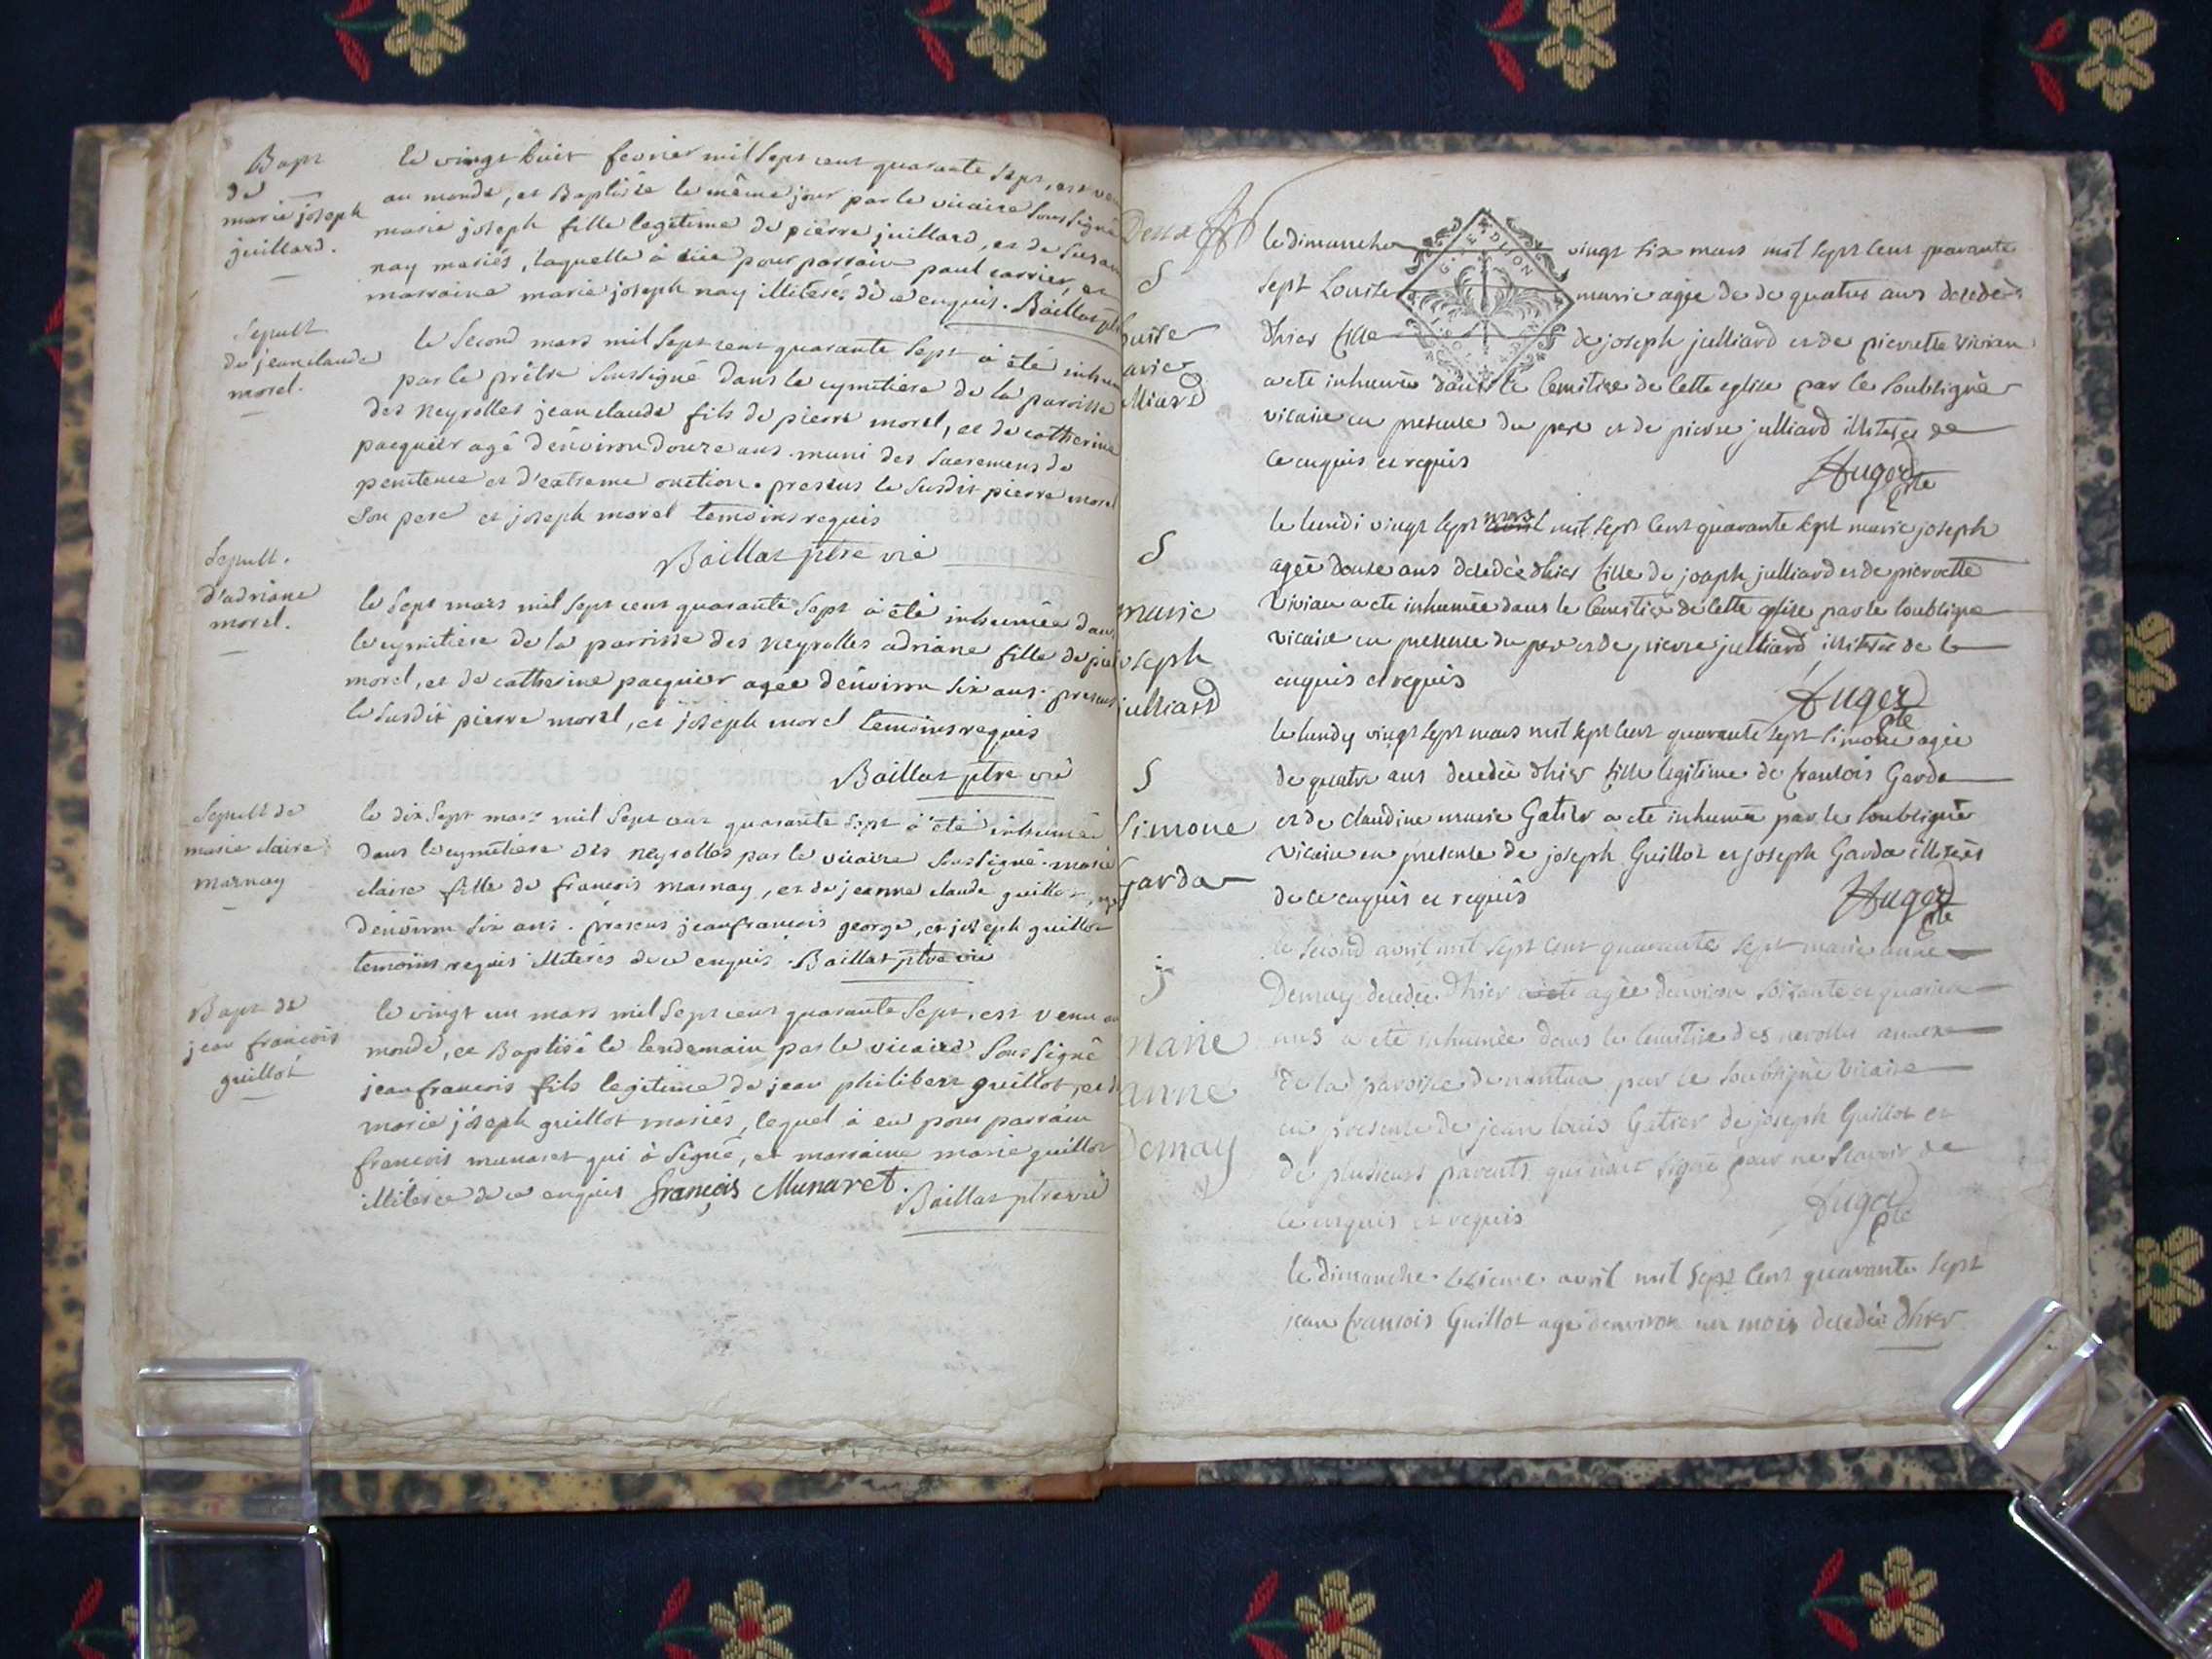 Bapt
de
marie joseph
juillard.
le vingt huit fevrier mil sept cent quarante sept, est venu
au monde, et Baptisée le même jour par le vicaire soussigné
marie joseph fille legitime de pierre juillard, et de susanne
nay mariés, laquelle à eüe pour parrain paul carrier, et
marraine marie joseph nay illiterés de ce enquis. Baillat ptre
Sepult
de jean claude
morel.
le second mars mil sept cent quarante sept à été inhumé
par le prêtre soussigné dans le cymitiere de la paroisse
des neyrolles jean claude fils de pierre morel, et de catherine
pacquier agé d'environ douze ans. muni des sacremens de
penitence et d'extreme onction. presens le susdit pierre morel
son pere et joseph morel temoins requis
Baillat ptre vic
Sepult.
d'adriane
morel.
le sept mars mil sept cent quarante sept à été inhumée dans
le cymitiere de la parrisse des neyrolles adriane fille de pierre
morel, et de catherine pacquier agée d'environ six ans. presens
le susdit pierre morel, et joseph morel temoins requis
Baillat ptre vic
Sepult de
marie claire
marnay
le dix sept mars mil sept cent quarante sept à été inhumée
dans le cymitiere des neyrolles par le vicaire soussigné marie
claire fille de francois marnay, et de jeanne claude guillot, agée
d'environ six ans. presens jean francois george, et joseph guillot
temoins requis illiterés de ce enquis. Baillat ptre vic
Bapt de
jean francois
guillot
le vingt un mars mil sept cent quarante sept, est venu au
monde, et Baptisé le lendemain par le vicaire soussigné
jean francois fils legitime de jean philibert guillot, et de
marie joseph guillot mariés, lequel à eu pour parrain
francois munaret qui à signé, et marraine marie guillot
illiterée de ce enquis françois Munaret. Baillat ptre vic
S
Louise
marie
julliard
le dimanche vingt six mars mil sept cent quarante
sept Louise marie agée de de quatre ans decedée
dhier fille de joseph julliard et de pierrette vivian
a ete inhumée dans le Cemitiere de Cette eglise par le soubsigné
vicaire en presence du pere et de pierre julliard illiterés de
ce enquis et requis
Huger
pte
S
marie
joseph
julliard
le lundi vingt sept mars mil sept cent quarante sept marie joseph
agée douze ans decedée dhier fille de joseph julliard et de pierrette
vivian a ete inhumée dans le Cemitiere de Cette eglise par le soubsigné
vicaire en presence du pere et de pierre julliard illiterés de ce
enquis et requis
Huger
pte
S
Simone
Garda
le lundy vingt sept mars mil sept cent quarante sept Simone agée
de quatre ans decedée dhier fille legitime de francois Garda
et de claudine marie Gatier a ete inhumée par le soubsigné
vicaire en presence de joseph Guillot et joseph Garda illiterés
de ce enquis et requis
Huger
pte
marie
anne
Demay
le second avril mil sept cent quarante sept marie anne
Demay decedée dhier agée denviron soixante et quatre
ans a ete inhumée dans le Cemitiere des nerolles annexe
de la paroisse de nantua par le soubsigné vicaire
en presence de jean louis Gatier de joseph Guillot et
de plusieurs parents qui n'ont signé pour ne scavoir de
ce enquis et requis
Huger
pte
le dimanche avril mil sept cent quarante sept
jean francois Guillot agé denviron un mois decedée dhier